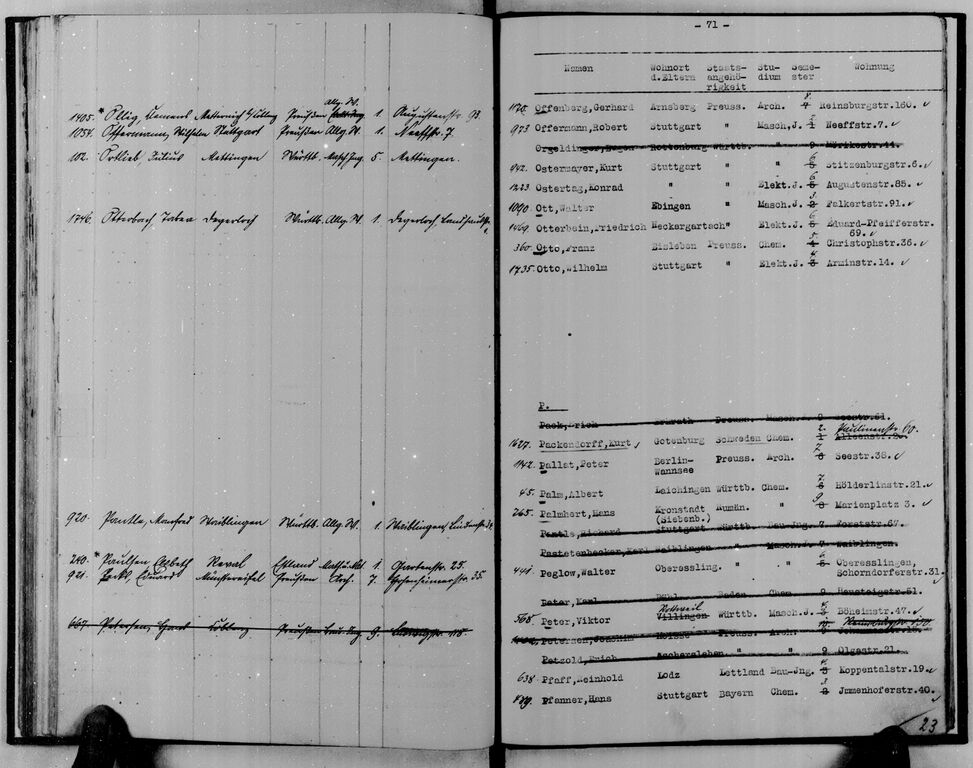 1405. * Ollig, Clemens Metternich b/Coblenz Preußen Allg. W. 1. Augustenstr. 98.
1054. Ostermann, Wilhelm Stuttgart Preußen Allg. W. 1. Neeffstr. 7
102. Ortlieb Julius Mettingen Württb. Masch. Ing 5 Mettingen.
1746. Otterbach Degerloch Württb. Allg. W. 1. Degerloch,
920. Pantle, Manfred Waiblingen Württb. Allg. W. 1 Waiblingen,
240. * Paulsen Elsbeth Reval Estland 1. Gartenstr. 25.
921. Eduard Münstereifel Preußen Arch. 7. 35.
667. Petersen, Preußen Bau Ing 9.
- 71 -
Namen Wohnort Staats- Stu- Seme- Wohnung
d.Eltern angehö- dium ster
rigkeit
1125. Offenberg, Gerhard Arnsberg Preuss. Arch. 8 4 Reinsburgstr.160. ✓
973 Offermann, Robert Stuttgart " Masch.J. 2 1 Neeffstr.7. ✓
Orgeldinger, Eugen Rottenburg Württb. " 9 Mörikestr.44.
942. Ostermayer, Kurt Stuttgart " " 6 5 Stitzenburgstr.6. ✓
1223. Ostertag, Konrad " " Elekt.J. 6 5 Augustenstr.85. ✓
1090. Ott, Walter Ebingen " Masch.J. 3 2 Falkertstr.91. ✓
1469. Otterbein, Friedrich Neckargartach " Elekt.J. 6 5 Eduard-Pfeifferstr.
69. ✓
360. Otto, Franz Eisleben Preuss. Chem. 5 4 Christophstr.36. ✓
1735. Otto, Wilhelm Stuttgart " Elekt.J. 4 3 Arminstr.14. ✓
P.
Pack, Erich Preuss. Masch.J. 9 Seestr.61.
1627. Packendorff, Kurt, Gotenburg Schweden Chem. 2. 1 Paulinenstr. 60.
1142. Pallat, Peter Berlin- Preuss. Arch. 7 6 Seestr.38. ✓
Wannsee
45. Palm, Albert Laichingen Württb. Chem. 7 6 Hölderlinstr.21. ✓
265. Palmhert, Hans Kronstadt Rumän. " 9 8 Marienplatz 3. ✓
(Siebenb.)
Pantle, Richard Stuttgart Württb. Bau-Jng. 7 Forststr.67.
Pastetenhecker, Karl Waiblingen " Masch.J. 7 Waiblingen.
441. Peglow, Walter Oberessling. " " 6 5 Oberesslingen,
Schorndorferstr.31. ✓
Peter, Karl Bühl Baden Chem. 9 Hausteigstr.51.
568. Peter, Viktor Rottweil Villingen Württb. Masch.J. 4 3 Böheimstr.47. ✓
Petersen, Preuss. Arch. 10.
Petzold, Erich Aschersleben " " 9 Olgastr.21.
638. Pfaff, Reinhold Lodz Lettland Bau-Jng. 4 3 Koppentalstr.19. ✓
Pfanner, Hans Stuttgart Bayern Chem. 3 2 Jmmenhoferstr.40. ✓
23